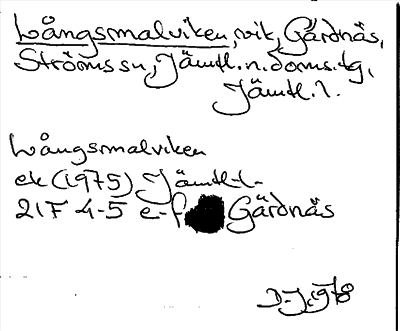 Långsmalviken, vik, Gärdnäs,
Ströms sn, Jämtl. n. doms. tg,
Jämtl. l.
Långsmalviken
ek (1975) Jämtl. l.
21F 4-5 e-f Gärdnäs
D-J 1978